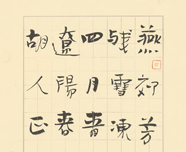 燕郊芳
残雪凍
四月青
遼陽春
胡人正